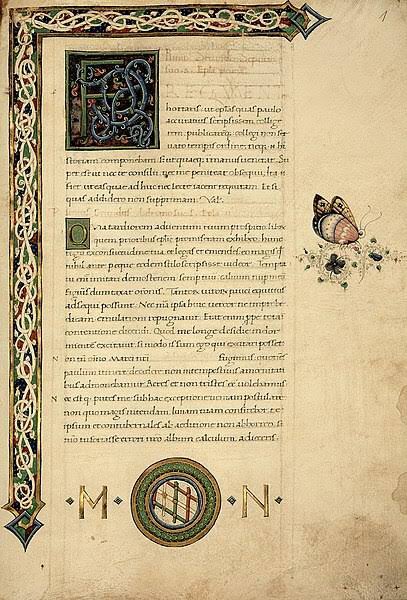 1
F
hortaris: ut eplas quas paulo
accuratius scripsissem, collige
rem, publicaremq; collegi non ser
uato temporis ordine: neq; n. hi
storiam componebam. Sed ut quaeq; i manus uenerat. Su
perest ut nec te consilii, nec me peniteat obsequii. Ita .n.
fiet ut eas quae ad huc neclecte iacent requiram. Et si
quas addidero non supprimam. Val.
Quia tardiorem aduentum tuum prospicio: libru
quem prioribus eplis promiseram exhibeo. hunc
rogo ex consuetudine tua et legas et emendes eo magis q
nihil ante peque eodem stilo scripsisse uideor. Tempta
ui enim imitari demostenem semp tuum, caluum nup meu
figuris dumtaxat oronis. Tantor uirorum pauci
adsequi possunt. Nec materia ipsa huic uereor ne improbe
dicam emulationi repugnauit. Erat enim ppe tota i
contentione dicendi. Quod me longe desidie indormi
entem excitauit si modo is sum ego qui excitari posset
N on tn oino Marci nri fugimus quotiens
paulum itinere decedere non intempestiuis amenitati
bus admonebamur. Acres .n. esse non tristes uolebamus
N ec est q putes me sub hac exceptione ueniam postulare
imo quo magis intendam limam tuam confitebor et
ipsum et contubernales ab aeditione non abhorrere si
mo tu fortasse errori nro album calculum adieceris.
M N